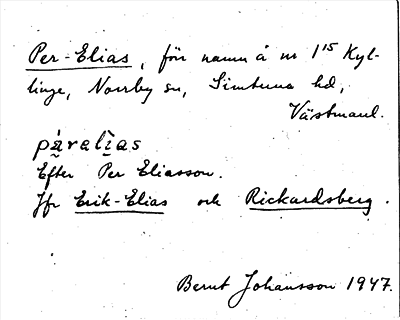 Per-Elias, för namn å nr 1¹⁵ Kyl-
linge, Norrby sn, Simtuna hd,
Västmanl.
pàralìas
Efter Per Eliasson.
Jfr Erik-Elias och Rickardsberg.
Bernt Johansson 1947.